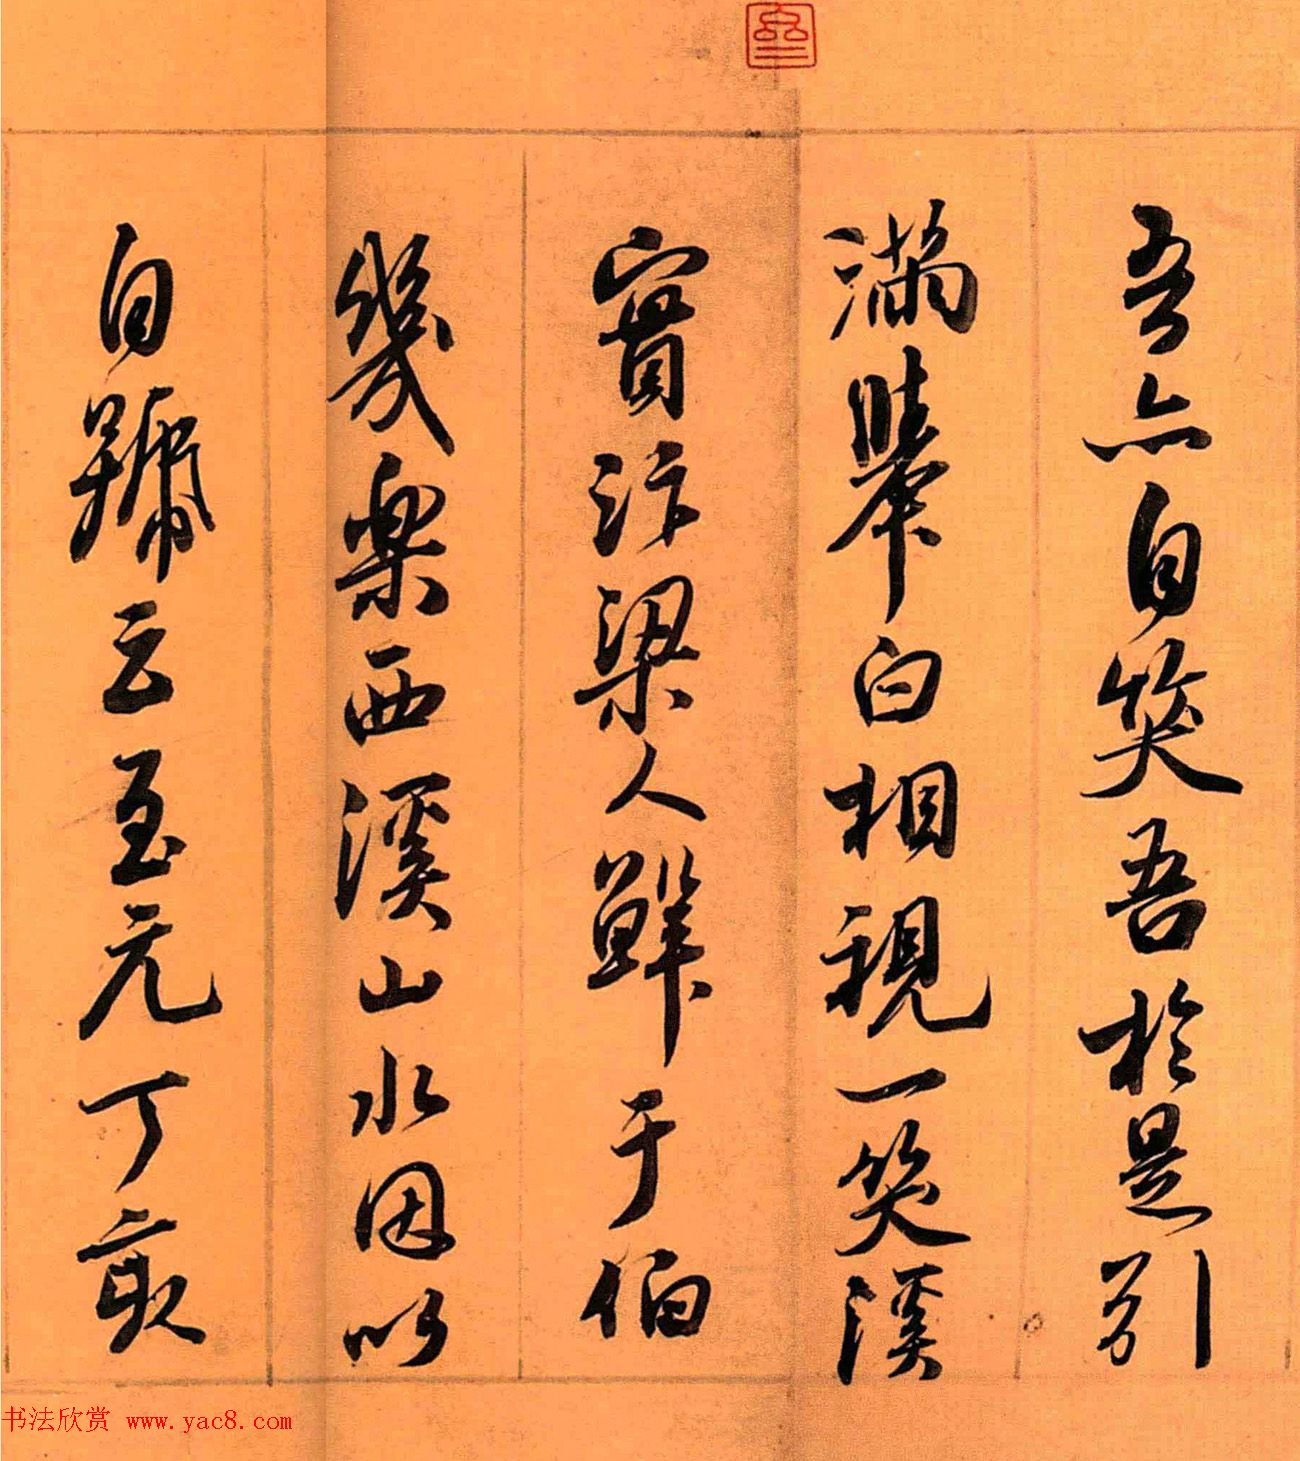 吾亦自笑吾於是引
滿舉白相視一笑溪
賓汴梁人鮮于伯
幾樂西溪山水因以
自號云至元丁亥
书法欣赏 www.yac8.com